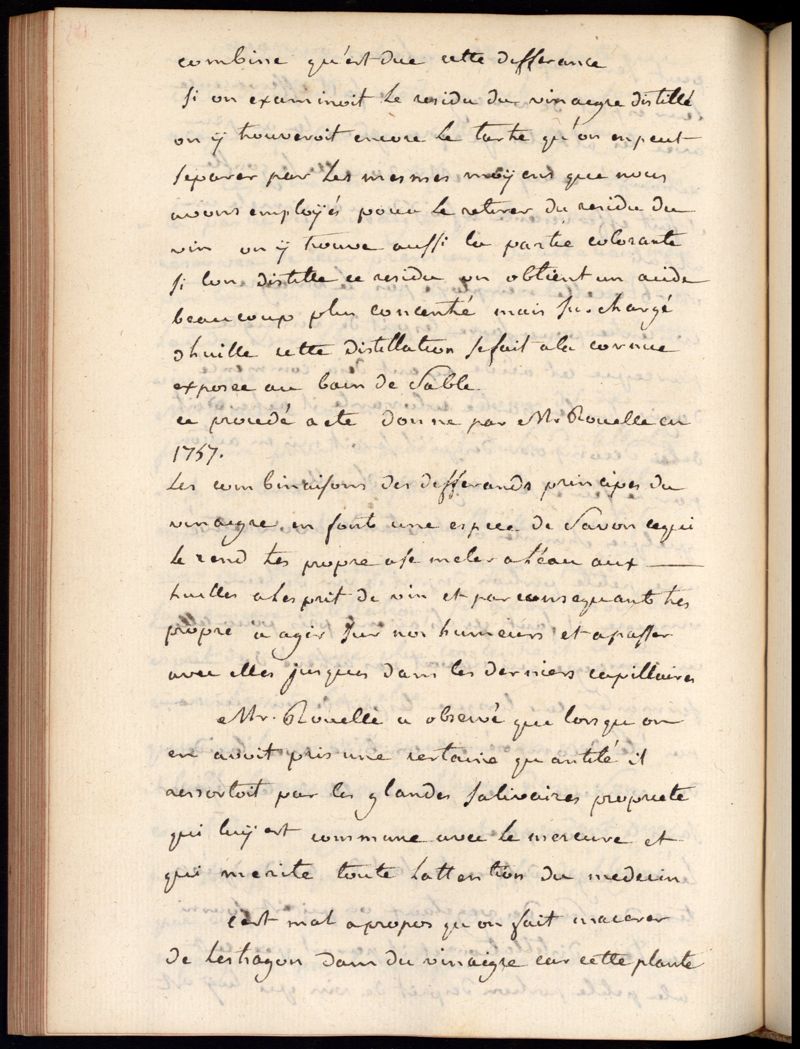 combine qu'est due cette differance
si on examinoit le residu du vinaigre distillé
on ÿ trouveroit encore le tartre qu'on en peut
separer par les mesmes moÿens que nous
avons emploÿés pour le retirer du residu du
vin on ÿ trouve aussi la partie colorante
si lon distille ce residu on obtient un acide
beaucoup plus concentré mais surchargé
dhuille cette distillation se fait a la cornue
exposee au bain de sable
ce procedé a ete donne par Mr Rouelle en
1757.
Les combinaisons des differands principes du
vinaigre en font une espece de savon ce qui
le rend tres propre a se meler a léau aux
huilles a lesprit de vin et par consequant tres
propre a agir sur nos humeurs et a passer
avec elles jusques dans les derniers capillaires
Mr. Rouelle a observé que lorsqu on
en avoit pris une certaine quantité il
ressortoit par les glandes salivaires propriete
qui luÿ est commune avec le mercure et
qui merite toute lattention du medecin
cest mal apropos qu on fait macerer
de lestragon dans du vinaigre car cette plante